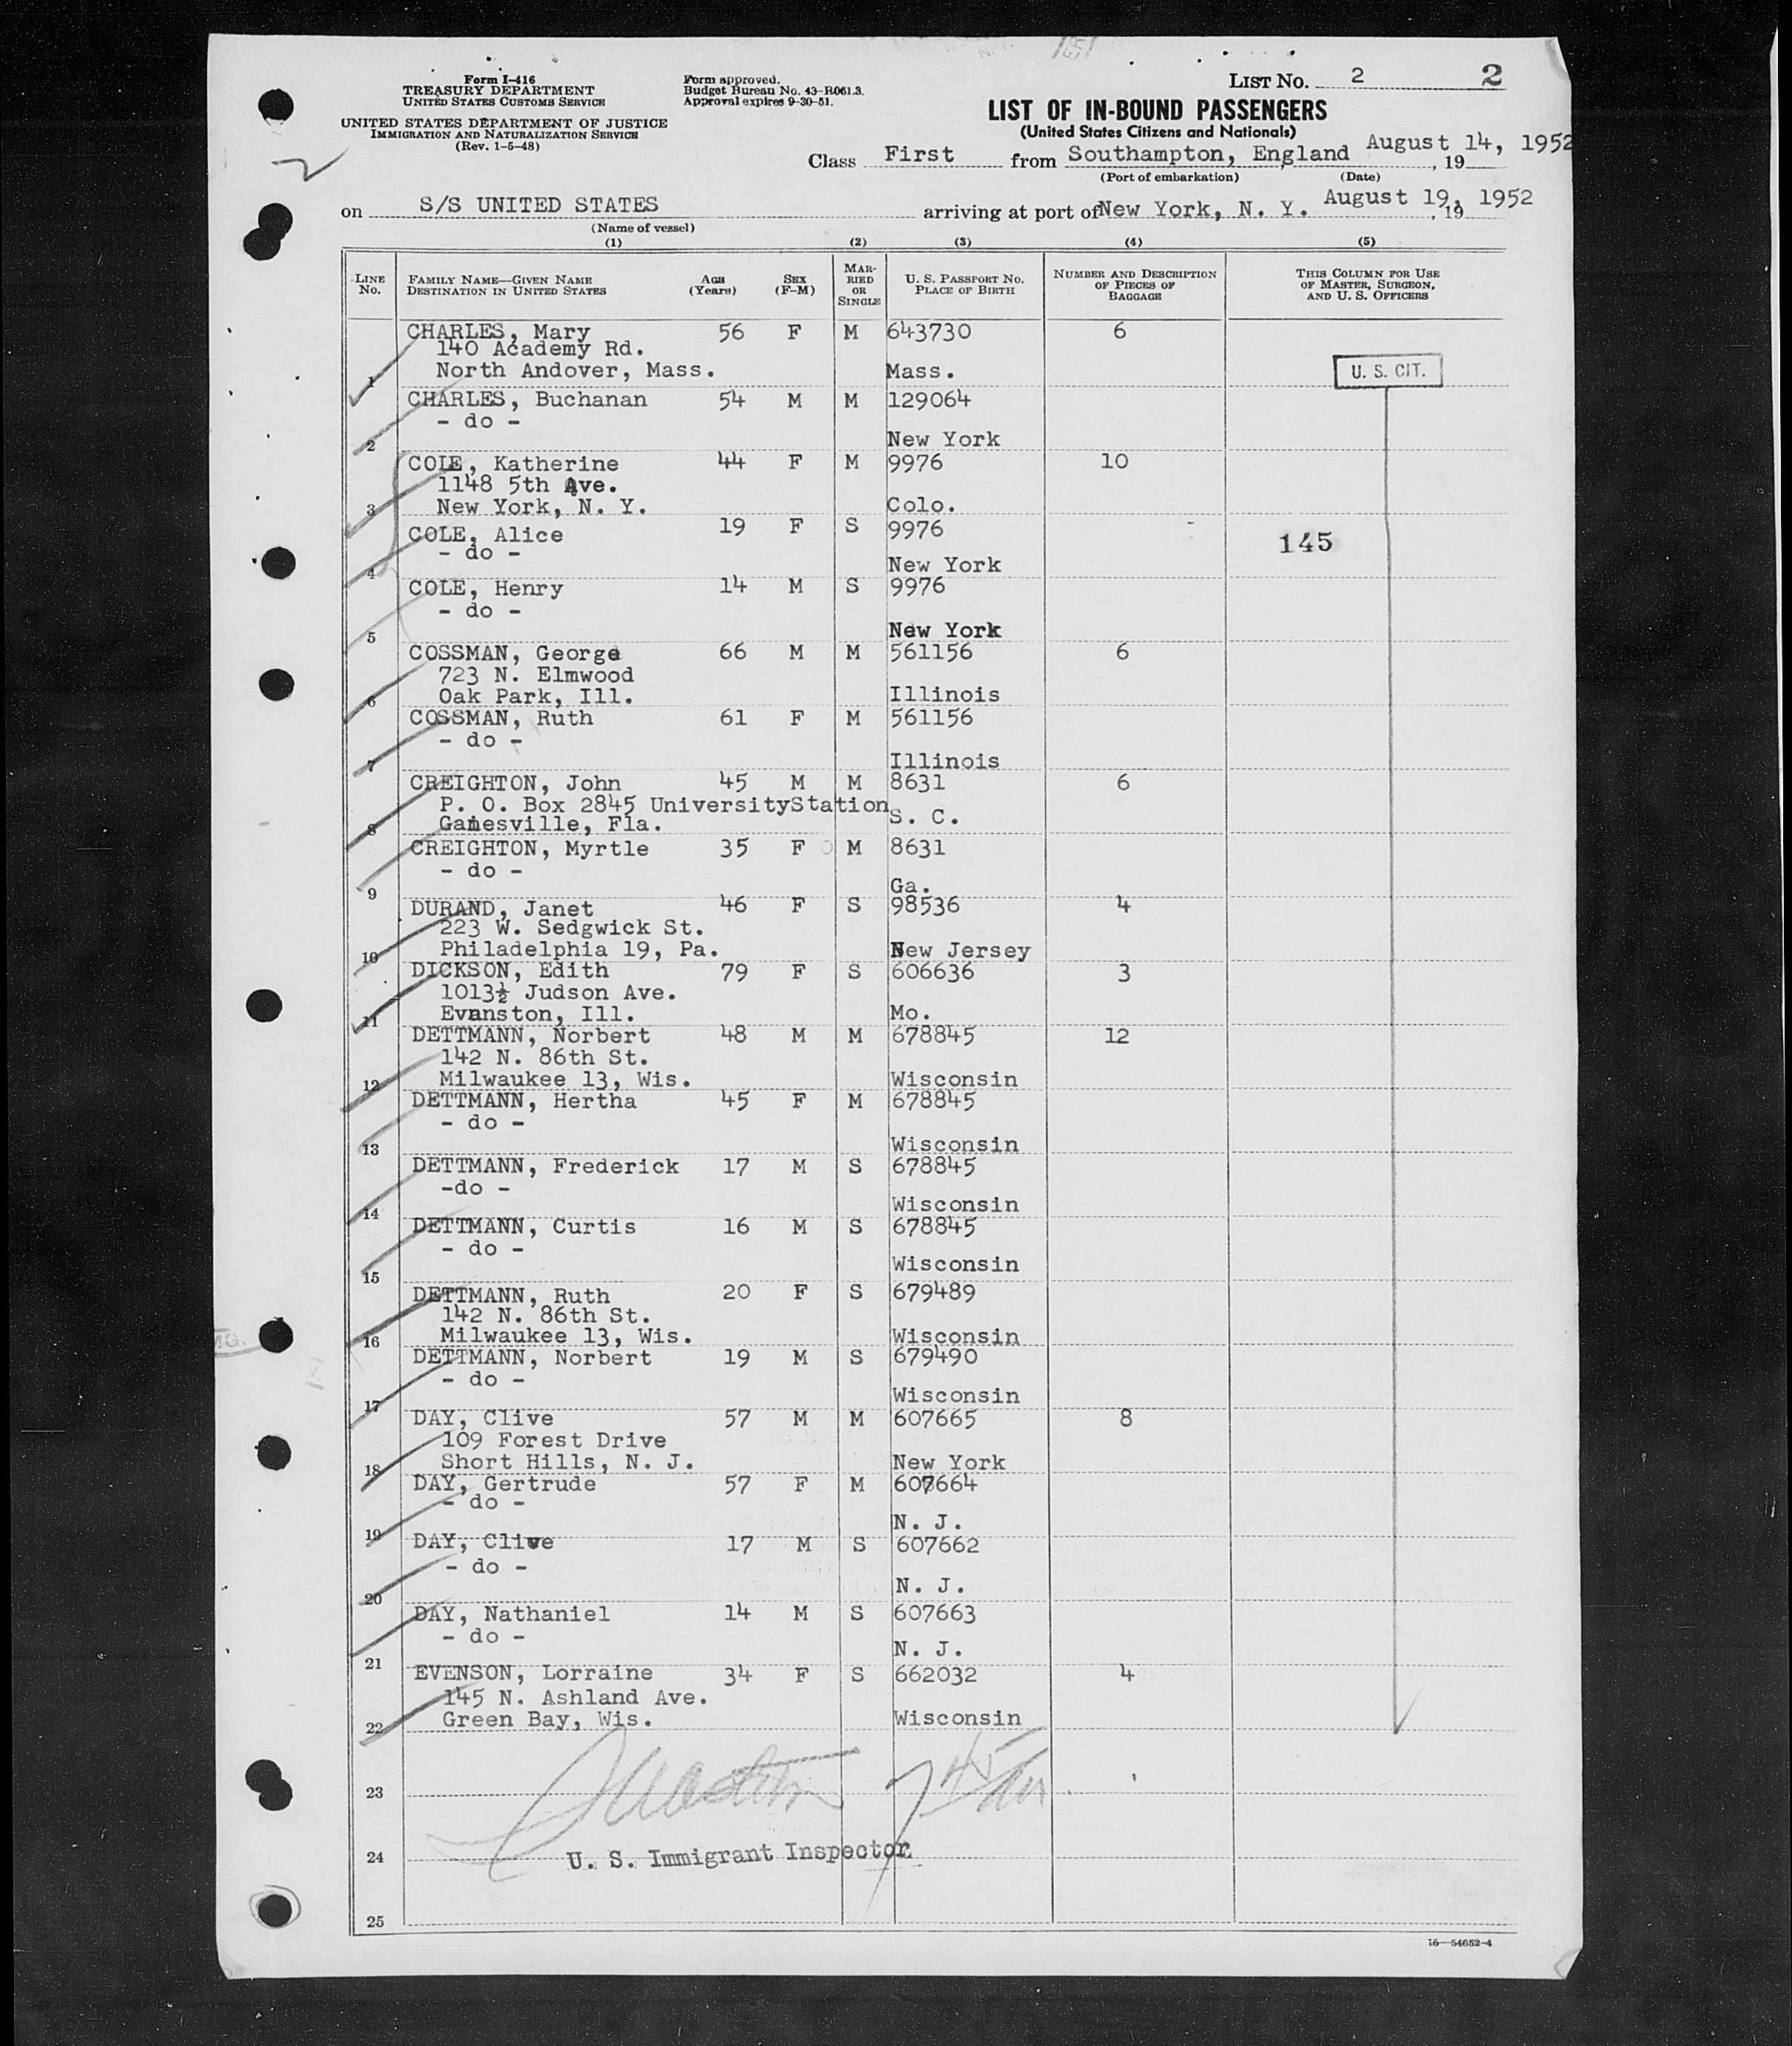 Form I-416
TREASURY DEPARTMENT
UNITED STATES CUSTOMS SERVICE
UNITED STATES DEPARTMENT OF JUSTICE
IMMIGRATION AND NATURALIZATION SERVICE
(Rev. 1-5-48)
Form approved.
Budget Bureau No. 43-R061.3.
Approval expires 9-30-51.
LIST No. 2 2
LIST OF IN-BOUND PASSENGERS
(United States Citizens and Nationals)
Class First from Southampton, England August 14, 1952, 19
(Port of embarkation) (Date)
on S/S UNITED STATES arriving at port of New York, N. Y. August 19, 1952, 19
(Name of vessel)
(1) (2) (3) (4) (5)
LINE No. FAMILY NAME—GIVEN NAME DESTINATION IN UNITED STATES AGE (Years) SEX (F-M) MARRIED OR SINGLE U. S. PASSPORT NO. PLACE OF BIRTH NUMBER AND DESCRIPTION OF PIECES OF BAGGAGE THIS COLUMN FOR USE OF MASTER, SURGEON, AND U. S. OFFICERS
CHARLES, Mary 56 F M 643730 6
140 Academy Rd.
1 North Andover, Mass. Mass. U. S. CIT.
CHARLES, Buchanan 54 M M 129064
- do -
2 New York
COLE, Katherine 44 F M 9976 10
1148 5th Ave.
3 New York, N. Y. Colo.
COLE, Alice 19 F S 9976
- do - 145
4 New York
COLE, Henry 14 M S 9976
- do -
5 New York
COSSMAN, George 66 M M 561156 6
723 N. Elmwood
6 Oak Park, Ill. Illinois
COSSMAN, Ruth 61 F M 561156
- do -
7 Illinois
CREIGHTON, John 45 M M 8631 6
P. O. Box 2845 UniversityStation
8 Gainesville, Fla. S. C.
CREIGHTON, Myrtle 35 F M 8631
- do -
9 Ga.
DURAND, Janet 46 F S 98536 4
223 W. Sedgwick St.
10 Philadelphia 19, Pa. New Jersey
DICKSON, Edith 79 F S 606636 3
1013½ Judson Ave.
11 Evanston, Ill. Mo.
DETTMANN, Norbert 48 M M 678845 12
142 N. 86th St.
12 Milwaukee 13, Wis. Wisconsin
DETTMANN, Hertha 45 F M 678845
- do -
13 Wisconsin
DETTMANN, Frederick 17 M S 678845
-do -
14 Wisconsin
DETTMANN, Curtis 16 M S 678845
- do -
15 Wisconsin
DETTMANN, Ruth 20 F S 679489
142 N. 86th St.
16 Milwaukee 13, Wis. Wisconsin
DETTMANN, Norbert 19 M S 679490
- do -
17 Wisconsin
DAY, Clive 57 M M 607665 8
109 Forest Drive
18 Short Hills, N. J. New York
DAY, Gertrude 57 F M 607664
- do -
19 N. J.
DAY, Clive 17 M S 607662
- do -
20 N. J.
DAY, Nathaniel 14 M S 607663
- do -
21 N. J.
EVENSON, Lorraine 34 F S 662032 4
145 N. Ashland Ave.
22 Green Bay, Wis. Wisconsin
23
24 U. S. Immigrant Inspector
25
16—54652-4